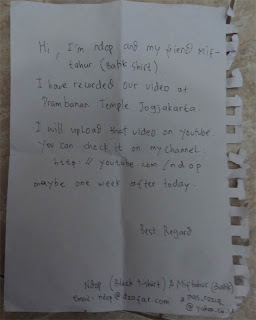 Hi, I'm ndop and my friend Mif-
tahur (Batik Shirt)
I have recorded our video at
Prambanan Temple Jogjakarta.
I will upload that video on youtube.
You can check it on my channel.
http://youtube.com/ndop
maybe one week after today..
Best Regard
Ndop (Black t-shirt) & Miftahur (Batik)
Email: ndop@dzofar.com &
@yahoo.co.id